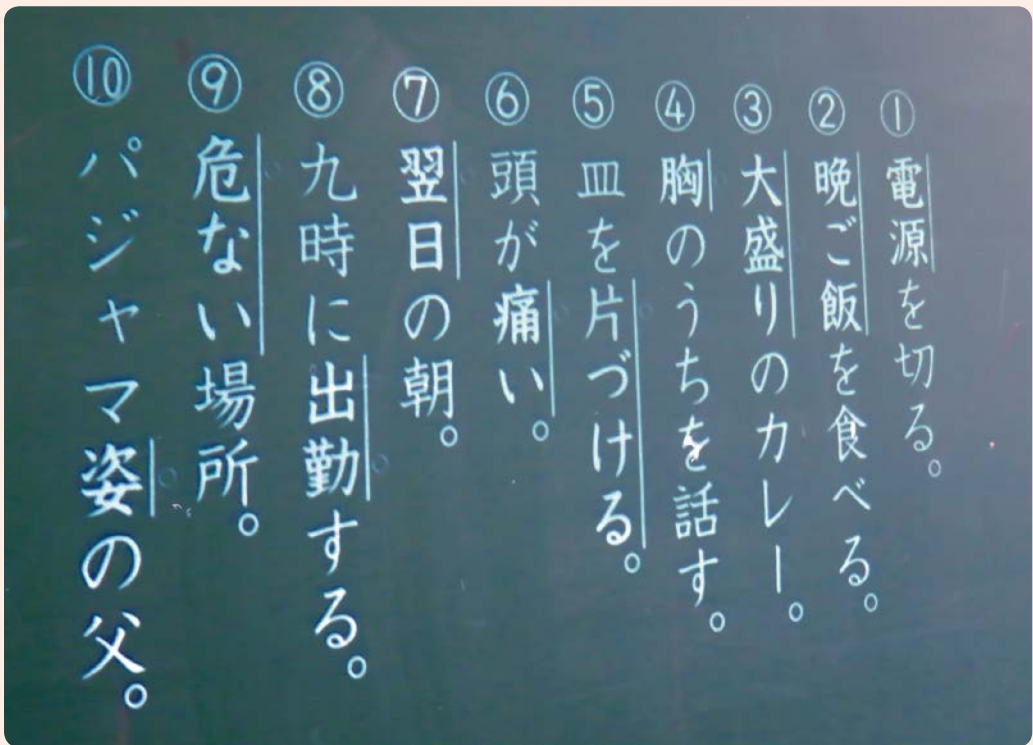 ①電源を切る。
②晩ご飯を食べる。
③大盛りのカレー。
④胸のうちを話す。
⑤皿を片づける。
⑥頭が痛い。
⑦翌日の朝。
⑧九時に出勤する。
⑨危ない場所。
⑩パジャマ姿の父。